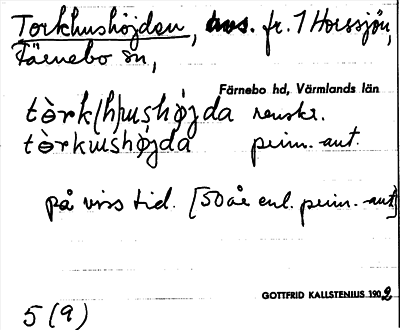 Torkhushöjden, avs. fr. 1 Horssjön,
Färnebo sn,
Färnebo hd, Värmlands län
tòrk(h)ushø̀jda renskr.
tòrkushø̀jda prim.-ant.
på viss tid. [50 år enl. prim.-ant]
GOTTFRID KALLSTENIUS 1902
5 (9)